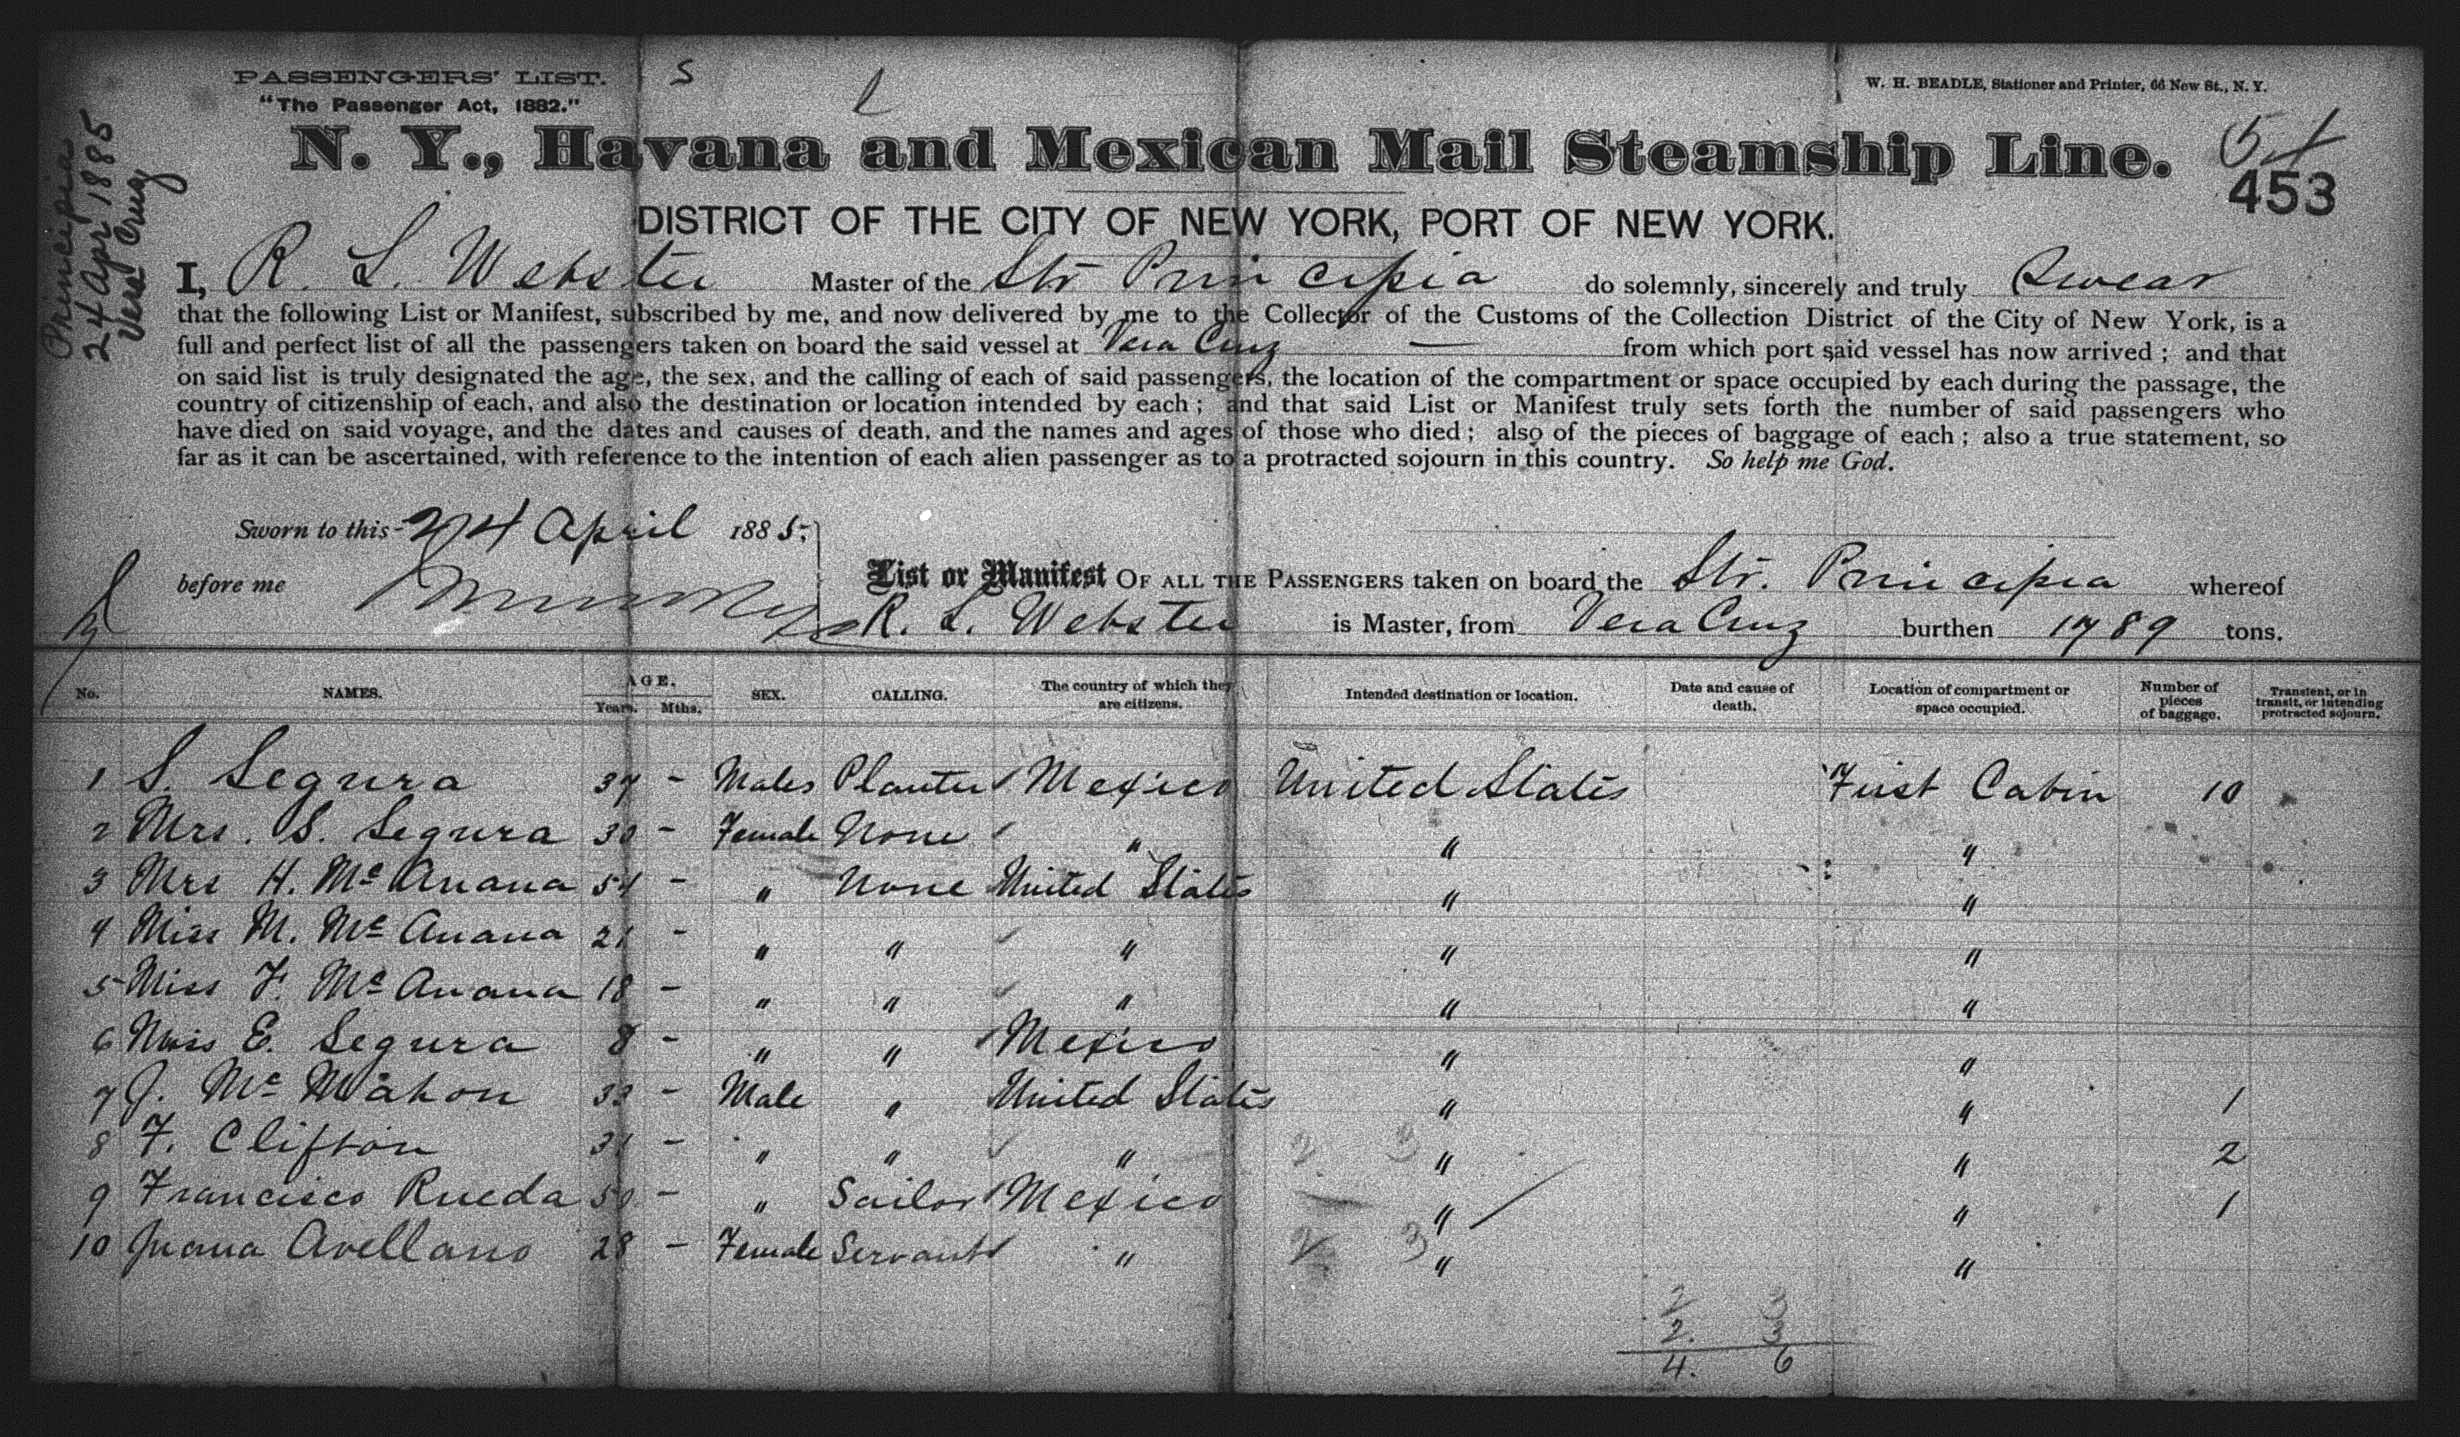 PASSENGERS' LIST.
"The Passenger Act, 1882."
S
W. H. BEADLE, Stationer and Printer, 66 New St., N. Y.
N. Y., Havana and Mexican Mail Steamship Line.
453
Principia
24 Apr 1885
Vera Cruz
DISTRICT OF THE CITY OF NEW YORK, PORT OF NEW YORK.
I, R. L. Webster Master of the Str Principia do solemnly, sincerely and truly Swear
that the following List or Manifest, subscribed by me, and now delivered by me to the Collector of the Customs of the Collection District of the City of New York, is a
full and perfect list of all the passengers taken on board the said vessel at Vera Cruz — from which port said vessel has now arrived; and that
on said list is truly designated the age, the sex, and the calling of each of said passengers, the location of the compartment or space occupied by each during the passage, the
country of citizenship of each, and also the destination or location intended by each; and that said List or Manifest truly sets forth the number of said passengers who
have died on said voyage, and the dates and causes of death, and the names and ages of those who died; also of the pieces of baggage of each; also a true statement, so
far as it can be ascertained, with reference to the intention of each alien passenger as to a protracted sojourn in this country. So help me God.
Sworn to this 24 April 1885.
before me
List or Manifest OF ALL THE PASSENGERS taken on board the Str. Principia whereof
R. L. Webster is Master, from Vera Cruz burthen 1789 tons.
No. NAMES. AGE. Years. Mths. SEX. CALLING. The country of which they are citizens. Intended destination or location. Date and cause of death. Location of compartment or space occupied. Number of pieces of baggage. Transient, or in transit, or intending protracted sojourn.
1 S. Segura 37 - Males Planter Mexico United States First Cabin 10
2 Mrs. S. Segura 30 - Female None " " "
3 Mrs H. Mc Anana 54 - " None United States " "
4 Miss M. Mc Anana 21 - " " " " "
5 Miss F. Mc Anana 18 - " " " " "
6 Miss E. Segura 8 - " " Mexico " "
7 J. Mc Mahon 33 - Male " United States " " 1
8 F. Clifton 31 - " " " " " 2
9 Francisco Rueda 50 - " Sailor Mexico " " 1
10 Juana Avellano 28 - Female Servant " " "
2 3
2 3
2 3
2. 3
4. 6